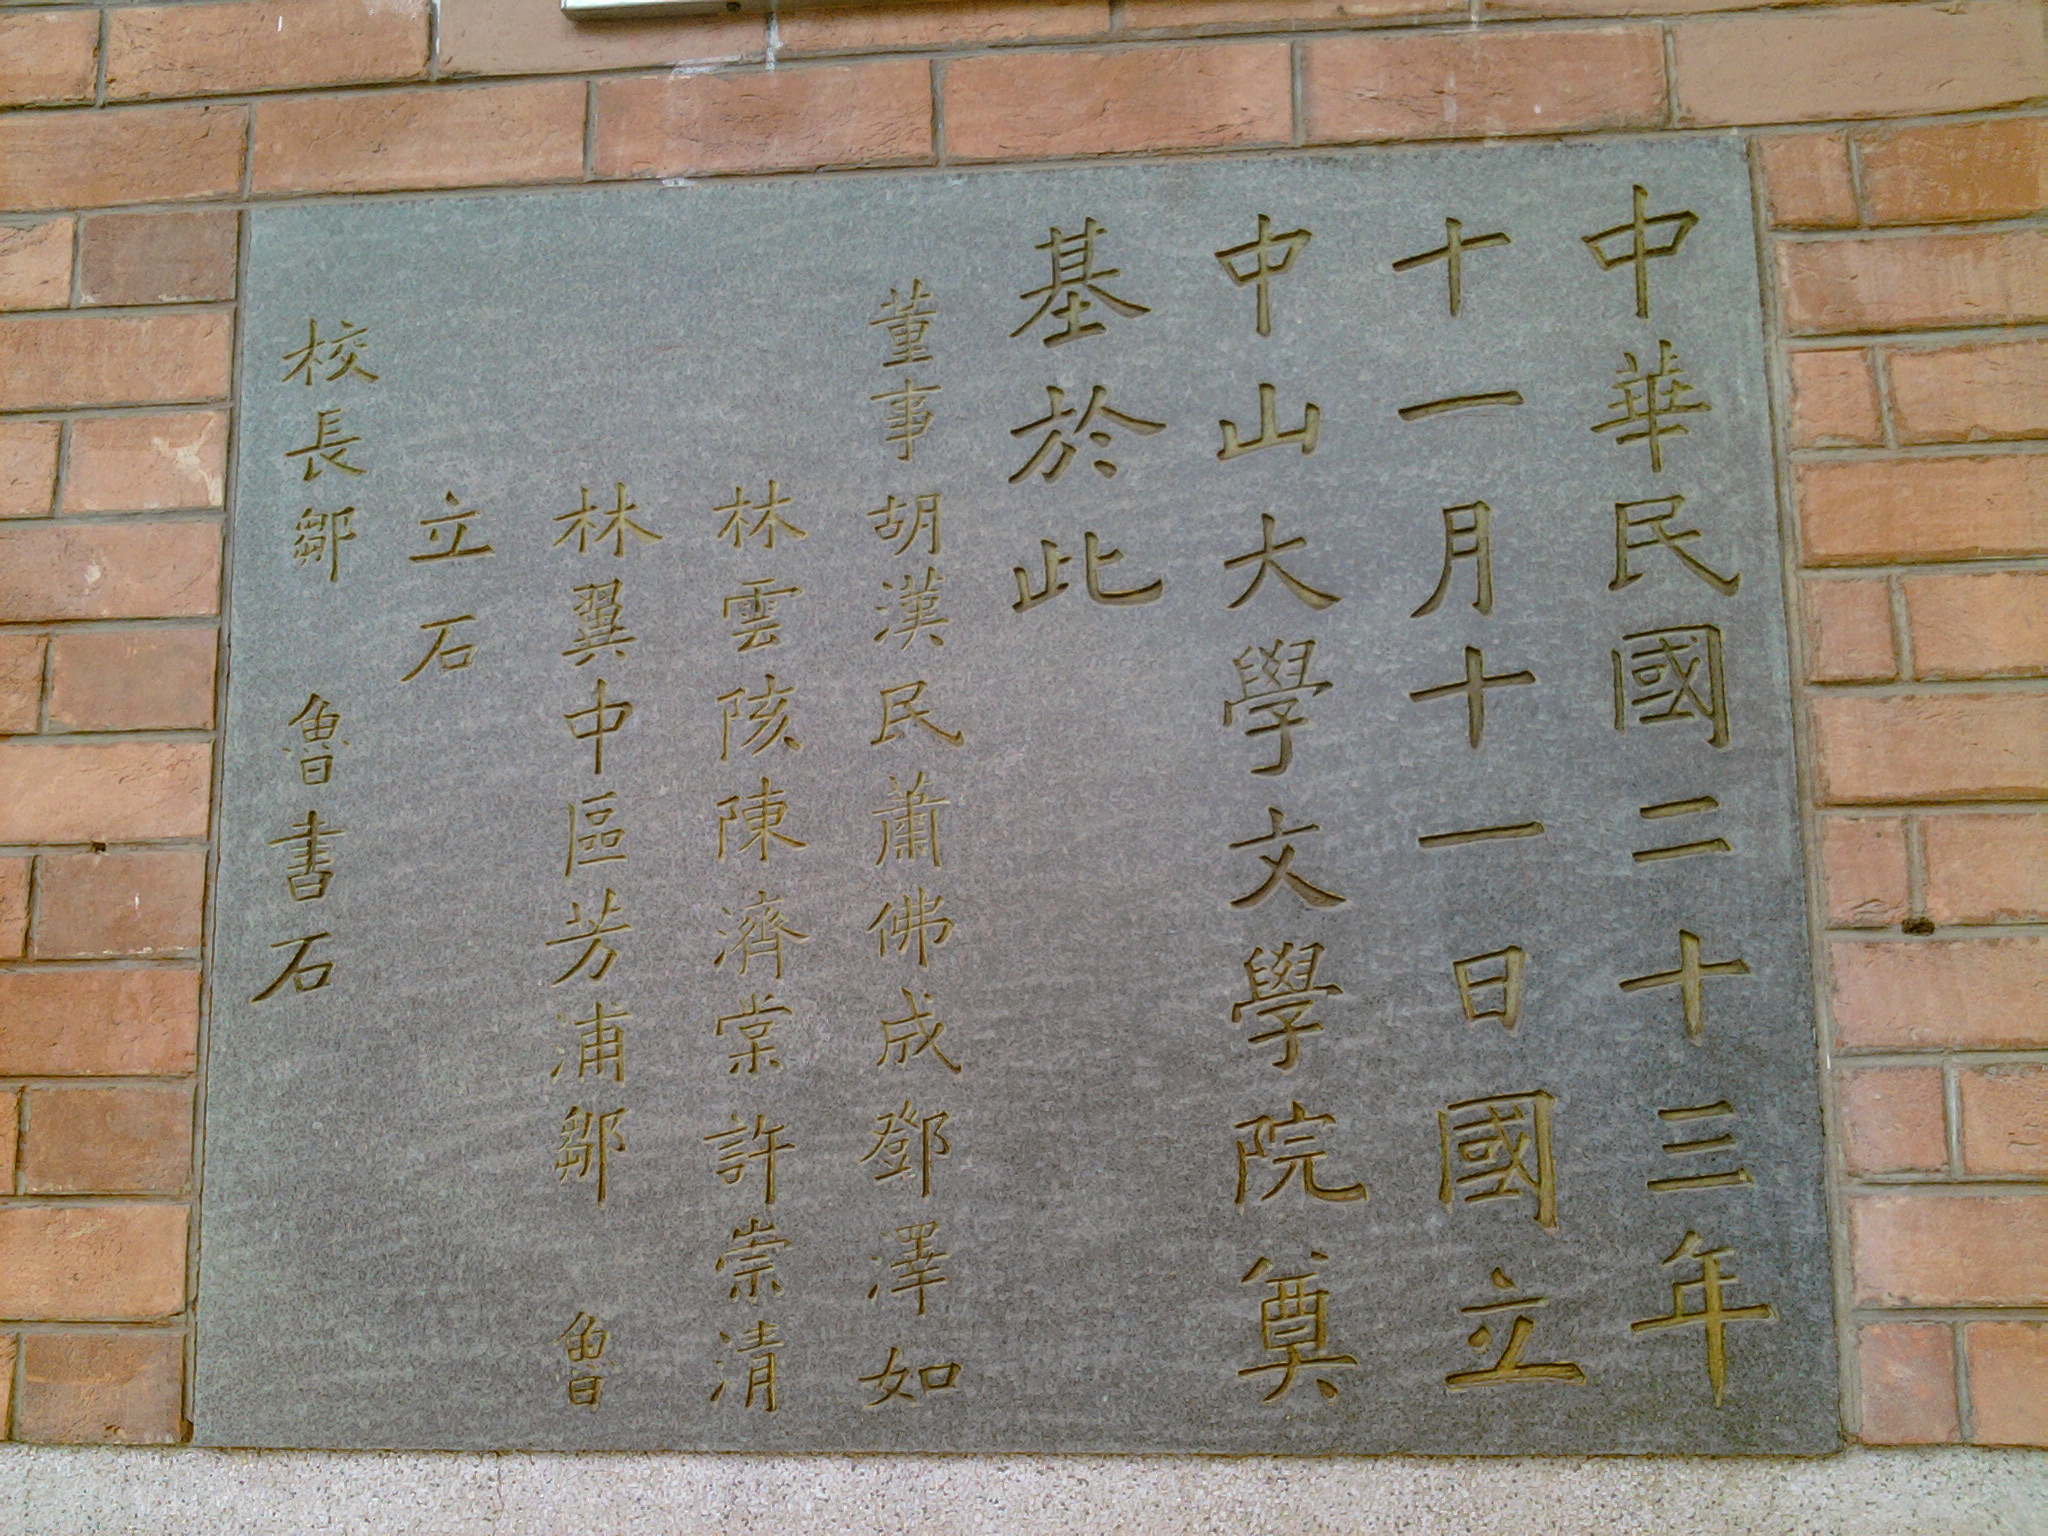 中華民國二十三年
十一月十一日國立
中山大學文學院奠
基於此
董事胡漢民蕭佛成鄧澤如
林雲陔陳濟棠許崇清
林翼中區芳浦鄒 魯
立石
校長鄒 魯書石